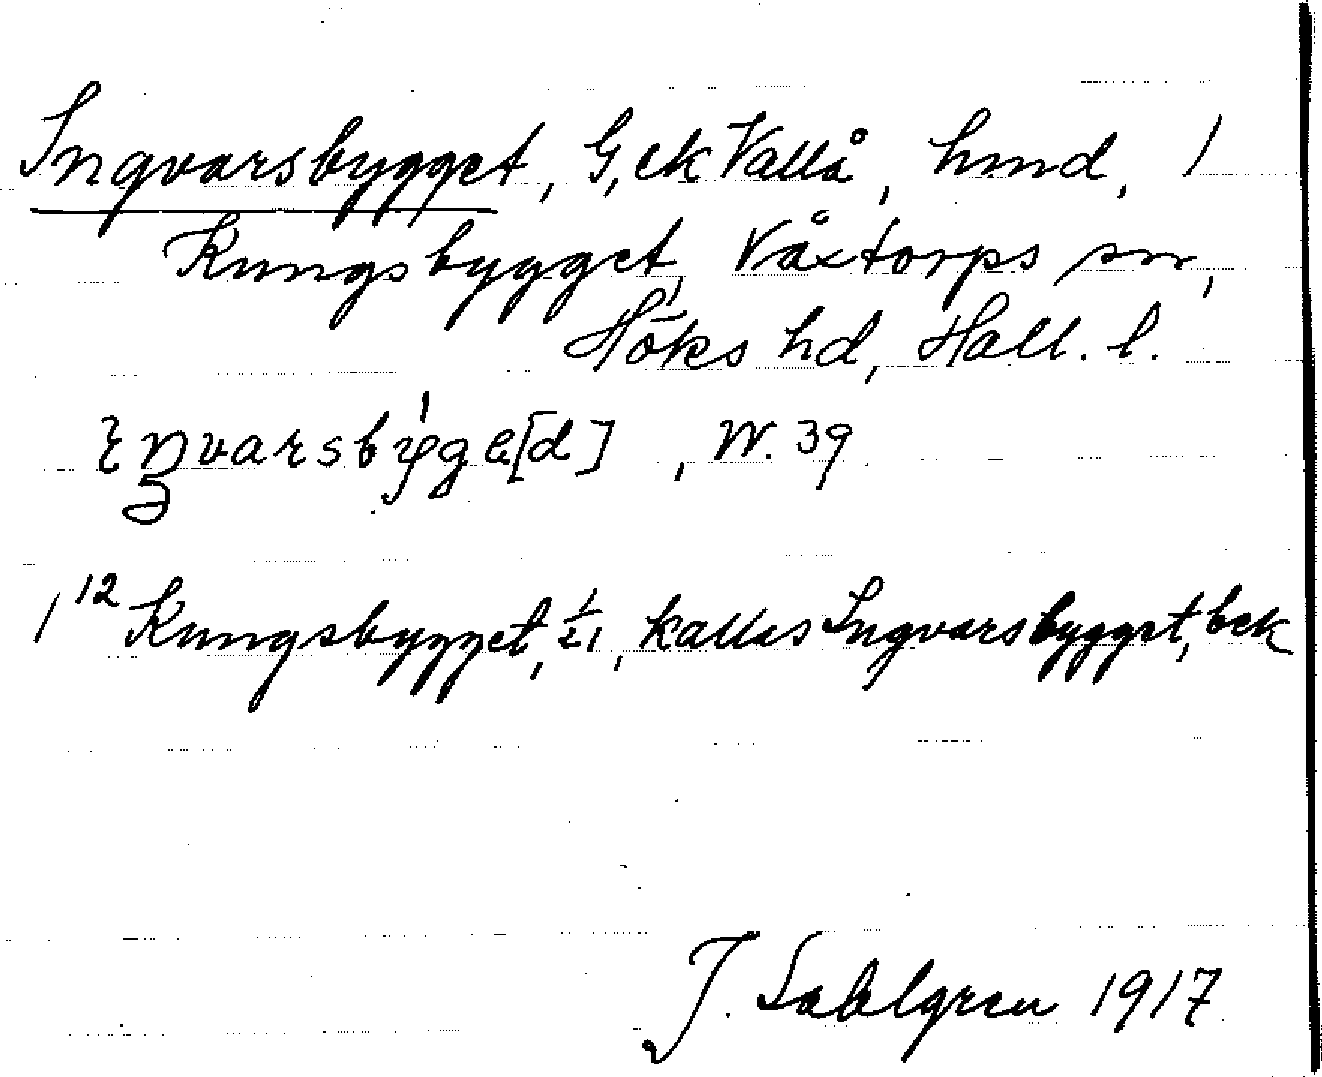 Ingvarsbygget, G, ek Vallå, hmd, /
Kungsbygget, Våxtorps sn,
Höks hd, Hall. l.
ɛŋvarsbýgə[d], W. 39
/12 Kungsbygget, 1/21, kallas Ingvarsbygget, bek
J. Sahlgren 1917